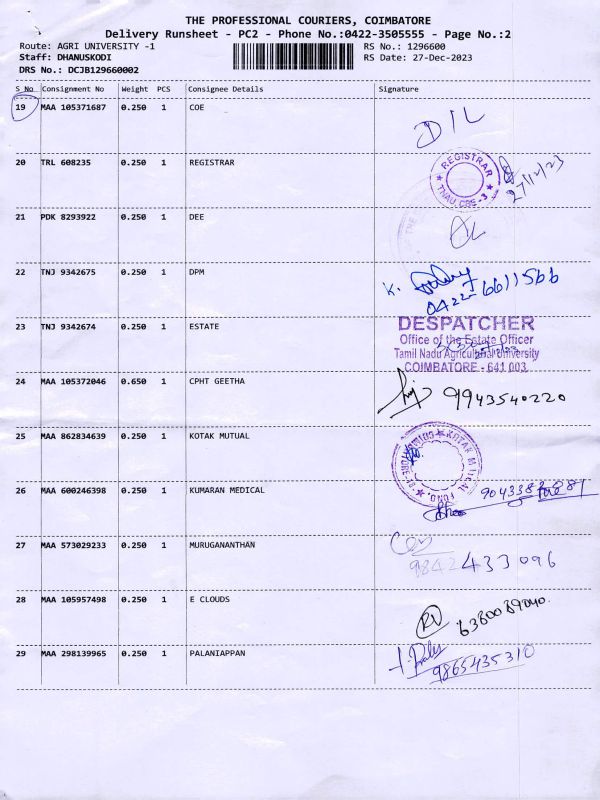 THE PROFESSIONAL COURIERS, COIMBATORE
Delivery Runsheet - PC2 - Phone No.:0422-3505555 - Page No.:2
Route: AGRI UNIVERSITY -1 RS No.: 1296600
Staff: DHANUSKODI RS Date: 27-Dec-2023
DRS No.: DCJB129660002
S No Consignment No Weight PCS Consignee Details Signature
19 MAA 105371687 0.250 1 COE
20 TRL 608235 0.250 1 REGISTRAR
★ REGISTRAR ★
TNAU, CBE - 3
27/12/23
21 PDK 8293922 0.250 1 DEE
22 TNJ 9342675 0.250 1 DPM
K.
0422-6611566
23 TNJ 9342674 0.250 1 ESTATE
DESPATCHER
Office of the Estate Officer
Tamil Nadu Agricultural University
COIMBATORE - 641 003
24 MAA 105372046 0.650 1 CPHT GEETHA
9943540220
25 MAA 862834639 0.250 1 KOTAK MUTUAL
★ KOTAK MUTUAL FUND, ★
26 MAA 600246398 0.250 1 KUMARAN MEDICAL
27 MAA 573029233 0.250 1 MURUGANANTHAN
9842433096
28 MAA 105957498 0.250 1 E CLOUDS
29 MAA 298139965 0.250 1 PALANIAPPAN
9865435310